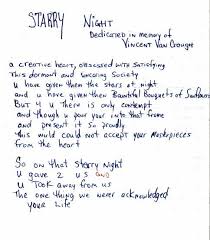 STARRY NIGHT
Dedicated in memory of
Vincent Van Gough
a creative heart, obsessed with satisfying
This dormant and uncaring Society
u have given them the stars at night
and u have given them Beautiful Bouquets of Sunflowers
But 4 u There is only contempt
and though u pour your into that frame
and present it so proudly
This world could not accept your Masterpieces
from the heart
So on that starry Night
u gave 2 us and
u Took away from us
The one thing we never acknowledged
your Life